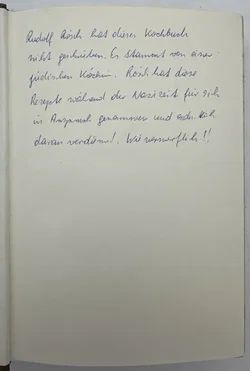 Rudolf Rösch hat dieses Kochbuch
nicht geschrieben. Es stammt von einer
jüdischen Köchin. Rösch hat diese
Rezepte während der Nazizeit für sich
in Anspruch genommen und
daran verdient. Wie verwerflich!!